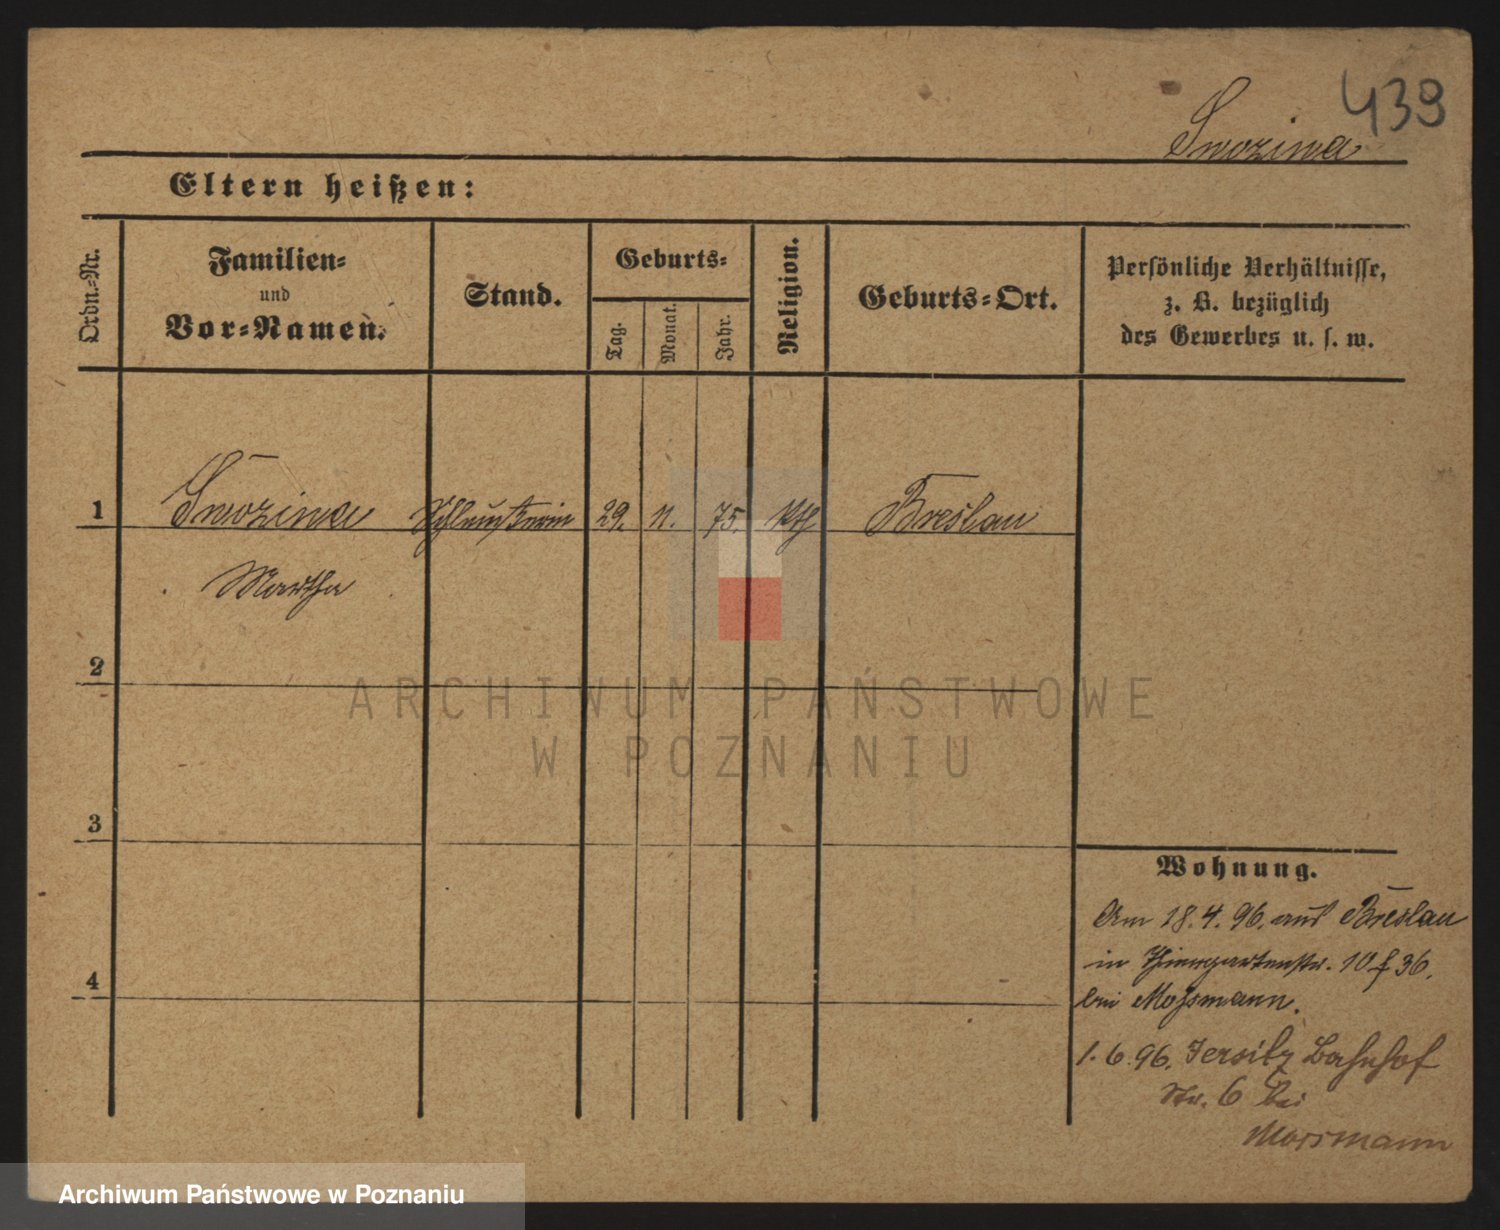 439
Smozina
Eltern heißen:
Ordn.-Nr.
Familien-
und
Vor-Namen.
Stand.
Geburts-
Tag.
Monat.
Jahr.
Religion.
Geburts-Ort.
Persönliche Verhältnisse,
z. B. bezüglich
des Gewerbes u. s. w.
1 Smozina 29. 11. 75. kth Breslau
Martha
2
ARCHIWUM PAŃSTWOWE
W POZNANIU
3
Wohnung.
Am 18.4.96. aus Breslau
in Thiergartenstr. 10
4
bei Mossmann.
1.6.96. Jersitz Bahnhof
Str. 6 bei
Morsmann
Archiwum Państwowe w Poznaniu